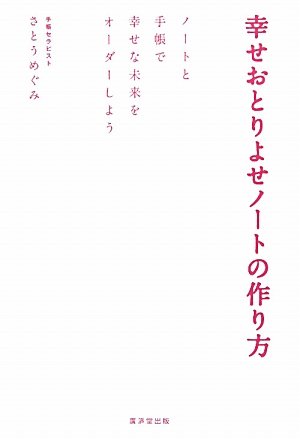 幸せおとりよせノートの作り方
ノートと
手帳で
幸せな未来を
オーダーしよう
手帳セラピスト
さとうめぐみ
廣済堂出版